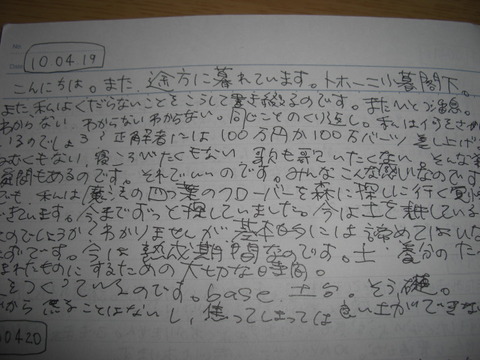 10 04 19
こんにちは。また、途方に暮れています。トホーニ小暮閣下。
また、私はくだらないことをこうして書き綴るのです。また
わからない わからないわからない。同じことのくり返し。私は何をさが
いるのでしょう? 正解者には100万円か100万バーツ 差し上げ
むくもない、寝ころびたくもない、歌も歌っていたくない。そんな
疑問もあるのです。それでいいのです。みんなこんな感じなのです
でも、私は魔法の四つ葉のクローバーを森に探しに行く
きています。今までずっと探していました。今は土を耕している
のでしょうか?わかりませんが基本的には諦めてはいな
ずです。今は熟成期間なのです。土、養分のた
まれたものにするための大切な時間。
をつくっているのです。base、土台。そう、礎。
から 焦ることはないし、焦ってしまっては良い土ができない
00420